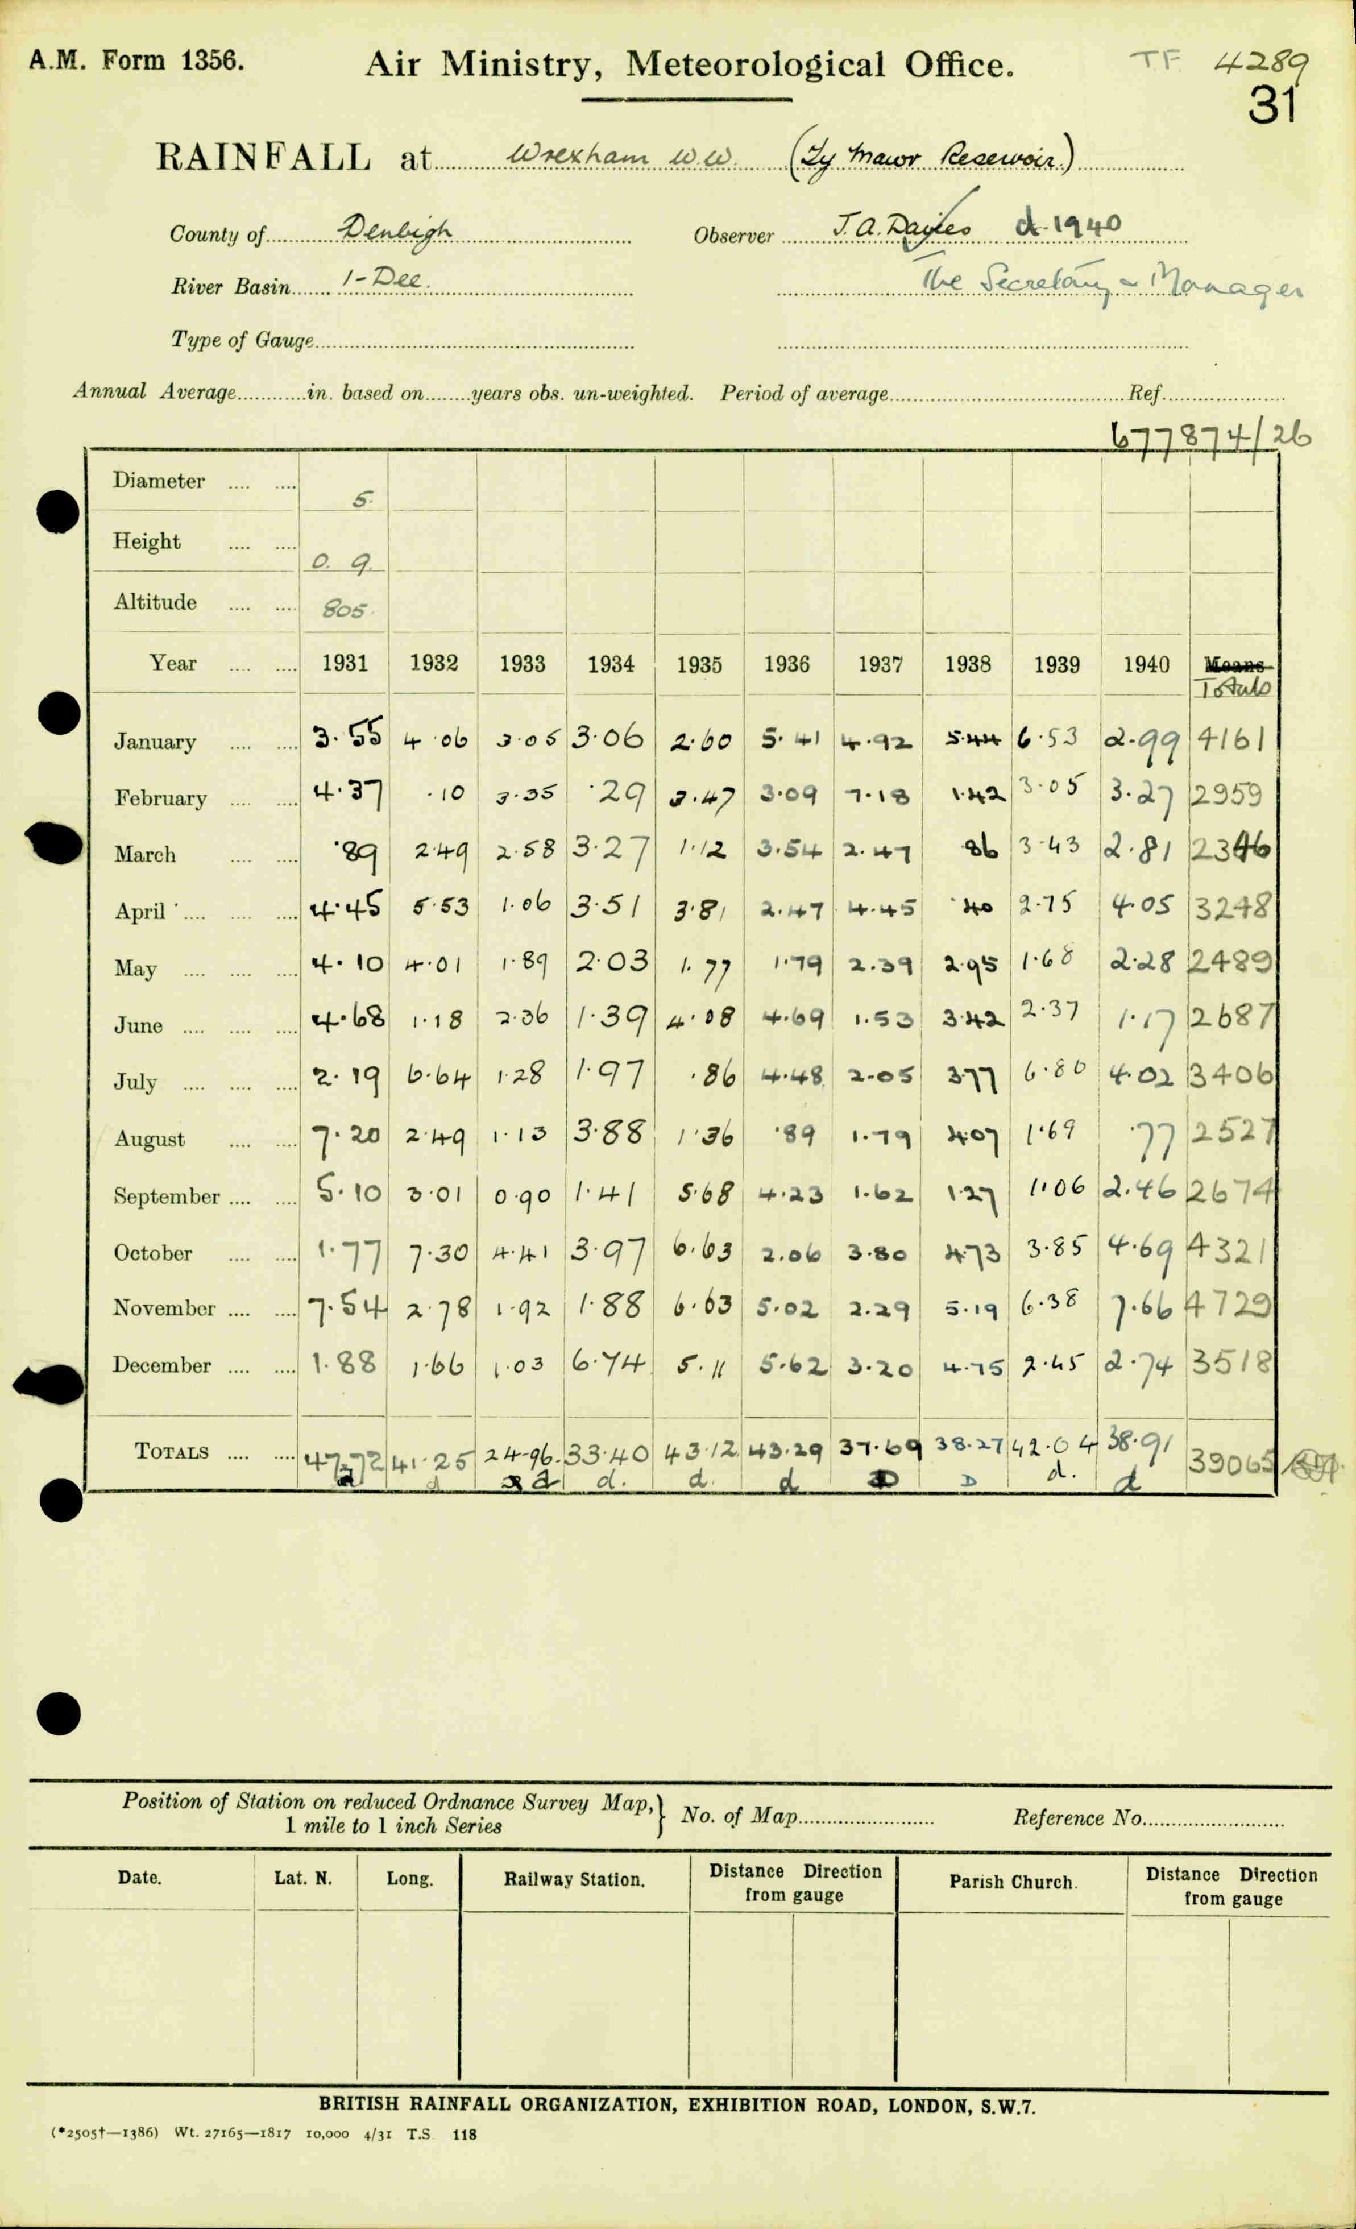 A.M. Form 1356.
Air Ministry, Meteorological Office.
TF 4289
31
RAINFALL at Wrexham W.W. (Ty Mawr Reservoir.)
County of Denbigh Observer J.A. Davies d. 1940
River Basin 1-Dee. The Secretary & Manager
Type of Gauge
Annual Average in. based on years obs. un-weighted. Period of average Ref.
677874/26
Diameter 5
Height 0. 9.
Altitude 805.
Year 1931 1932 1933 1934 1935 1936 1937 1938 1939 1940 Means
Totals
January 3.55 4.06 3.05 3.06 2.60 5.41 4.92 5.44 6.53 2.99 4161
February 4.37 .10 3.35 .29 3.47 3.09 7.18 1.42 3.05 3.27 2959
March .89 2.49 2.58 3.27 1.12 3.54 2.47 .86 3.43 2.81 2346
April 4.45 5.53 1.06 3.51 3.81 2.47 4.45 .40 2.75 4.05 3248
May 4.10 4.01 1.89 2.03 1.77 1.79 2.39 2.95 1.68 2.28 2489
June 4.68 1.18 2.36 1.39 4.08 4.69 1.53 3.42 2.37 1.17 2687
July 2.19 6.64 1.28 1.97 .86 4.48 2.05 3.77 6.80 4.02 3406
August 7.20 2.49 1.13 3.88 1.36 .89 1.79 4.07 1.69 .77 2527
September 5.10 3.01 0.90 1.41 5.68 4.23 1.62 1.27 1.06 2.46 2674
October 1.77 7.30 4.41 3.97 6.63 2.06 3.80 4.73 3.85 4.69 4321
November 7.54 2.78 1.92 1.88 6.63 5.02 2.29 5.19 6.38 7.66 4729
December 1.88 1.66 1.03 6.74 5.11 5.62 3.20 4.75 2.45 2.74 3518
TOTALS 47.72 41.25 24.96 33.40 43.12 43.29 37.69 38.27 42.04 38.91 39065
d d d. d. d D D d. d
Position of Station on reduced Ordnance Survey Map, No. of Map Reference No.
1 mile to 1 inch Series
Date. Lat. N. Long. Railway Station. Distance Direction from gauge Parish Church. Distance Direction from gauge
BRITISH RAINFALL ORGANIZATION, EXHIBITION ROAD, LONDON, S.W.7.
(*2505†—1386) Wt. 27165—1817 10,000 4/31 T.S. 118